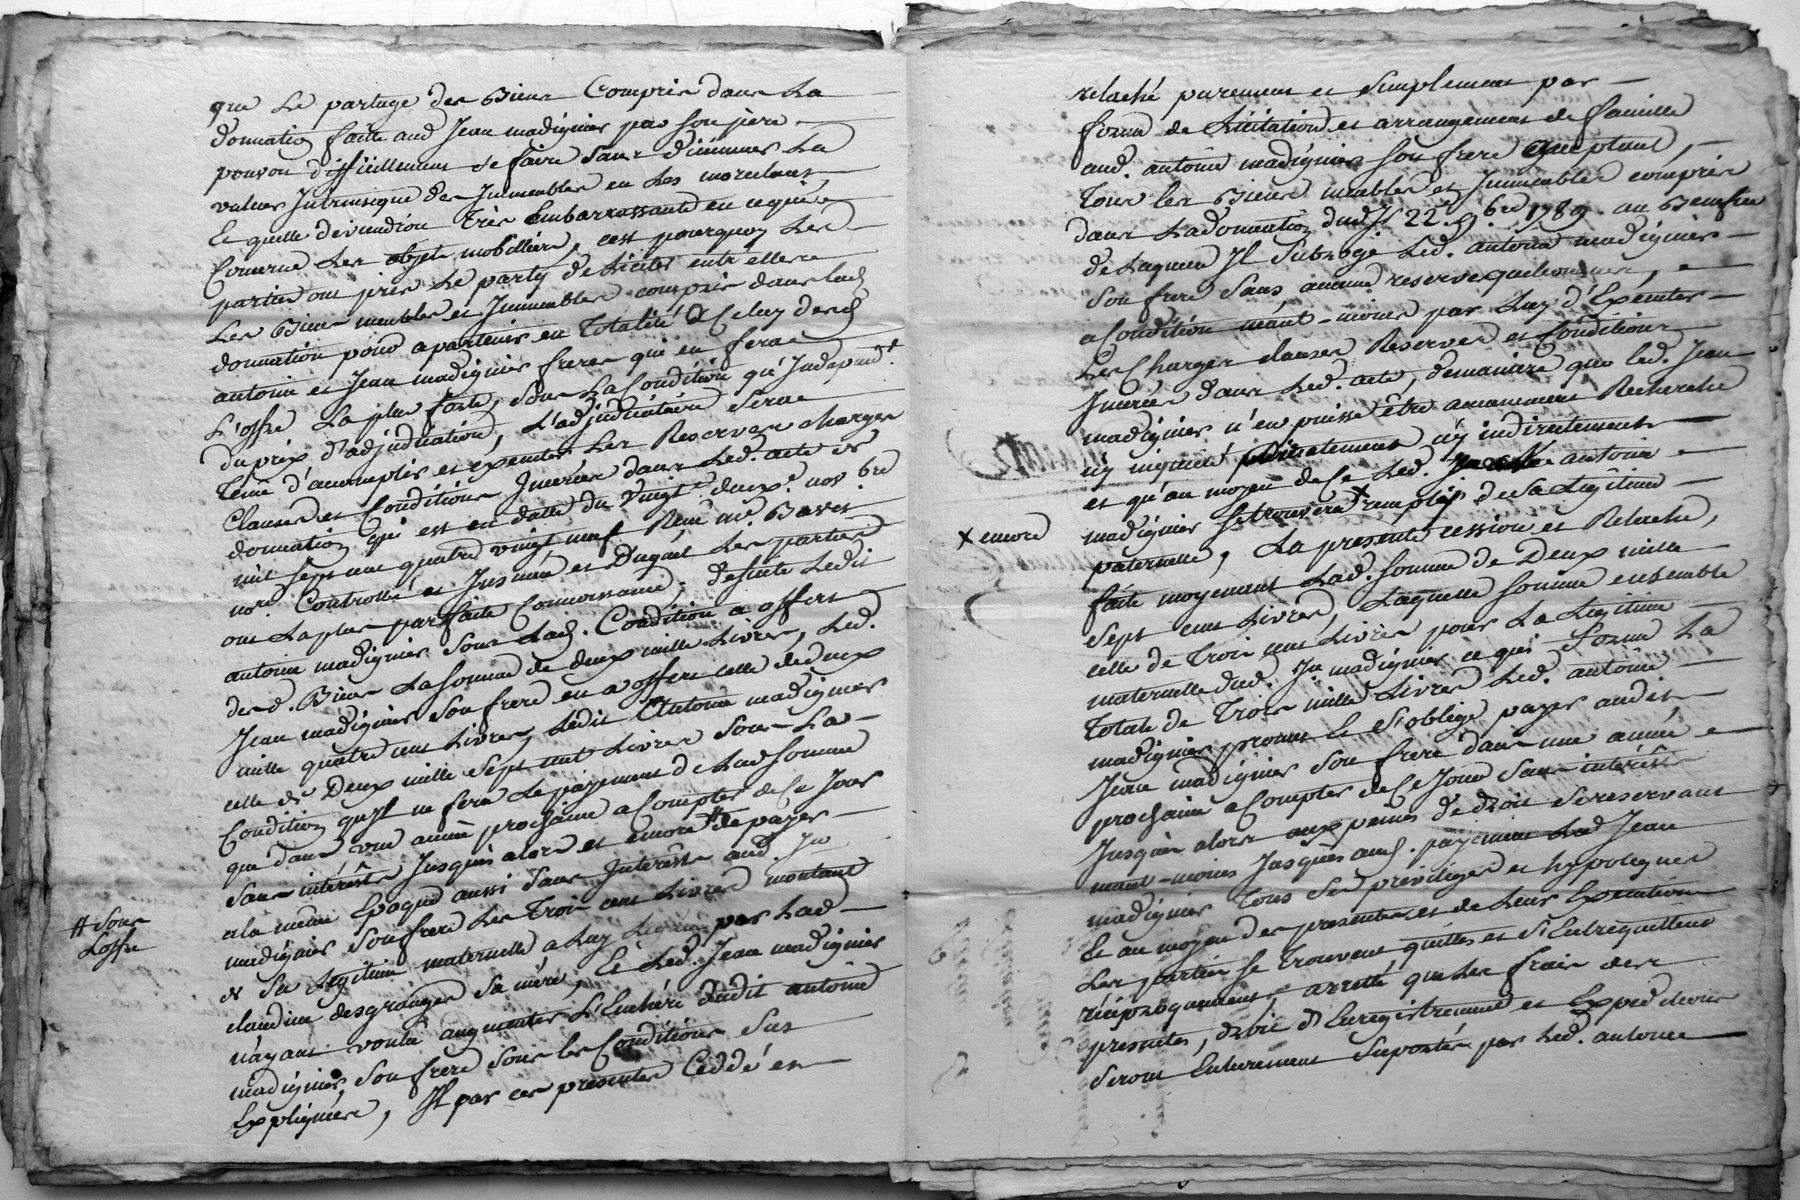 que Le partage des Biens Compris dans La
donnation faitte aud Jean madignier par son père
pouvon difficillement se faire sans diminuer La
valeur Intrinsique des Immeubles en Les morcelant,
Et quelle deviendroit très Embarrassante en ce qui
Concerne Les objets mobilliers, c'est pourquoy Les
parties ont pris Le party de Liciter entr'elles
Les Biens meubles et Immeubles compris dans lad
donnation pour apartenir en Totalité a Celuy desd
antoine et Jean madignier freres qui en fera
L'offre La plus forte, sous La Condition qu'Independt
du prix d'adjudication, L'adjudicataire sera
Tenu d'accomplir et exécuter Les Reserves charges
Clauses et Conditions Inserées dans Led. acte de
donnation qui est en datte du Vingt deuxe nov.bre
mil sept cent quatre vingt neuf Reçu me Baret
nore Controllé et Insinué et Duquel Les parties
ont La plus parfaite Connoissance; de suite Ledit
antoine madignier sous Lad. Condition a offert
desd. Biens La somme de deux mille Livres, Led.
Jean madignier son frere en a offert celle de deux
mille quatre cent Livres, Ledit Antoine madignier
celle de Deux mille sept cent Livres sous La
Condition qu'Il ne fera Le payement de Lad somme
que dans une année prochaine a Compter de Ce Jour
sans intérêts Jusques alors et encore # de payer
a la même Epoque aussi sans Interêts aud. Jn
madignier son frere Les Trois cent Livres montant
de sa Légitime maternelle, a Luy par Lad
claudine desgranges sa mère; Et Led. Jean madignier
n'ayant voulu augmenter L'Enchère dudit antoine
madignier, son frere sous les Conditions sus
Expliquées, Il par ces presentes Ceddé et
# sous
L'offre
relaché purement et simplement par
forme de Licitation et arrangement de famille
aud. antoine madignier son frere acceptant,
Tous les Biens meubles et Immeubles compris
dans La donnation dud Jr 22e 9.bre 1789. au Benefice
de Laquelle Il Subroge Led. antoine madignier
son frere sans aucune reserve quelconque,
a Condition néant-moins par Luy d'Executer
Les Charges clauses Reserves et Conditions
Inserées dans Led. acte, de maniere que led. Jean
madignier n'en puisse être aucunement Recherché
ny inquieté directement n'y indirectement
et qu'au moyen de Ce Led. antoine
madignier se trouvera x rempli de sa Légitime
x encore
paternelle, La presente cession et Relache,
faite moyenant Lad. somme de Deux mille
sept cent Livres, Laquelle somme ensemble
celle de Trois cent Livres pour La Légitime
maternelle dud. Jn madignier ce qui forme La
Totale de Trois mille Livres Led. antoine
madignier promet et s'oblige payer audit
Jean madignier son frere dans une année
prochaine a Compter de Ce Jour sans intérêts
Jusques alors aux peines de droit se reservant
néant-moins Jusques aud. payement Led Jean
madignier Tous ses privilèges et hypoteques
Et au moyen des presentes et de Leur Execution
Les parties se trouvent quittes et s'Entrequittent
réciproquement, arretté que Les frais des
presentes, droit d'Enregistrement et Expeditions
seront Entierement suportés par Led. antoine